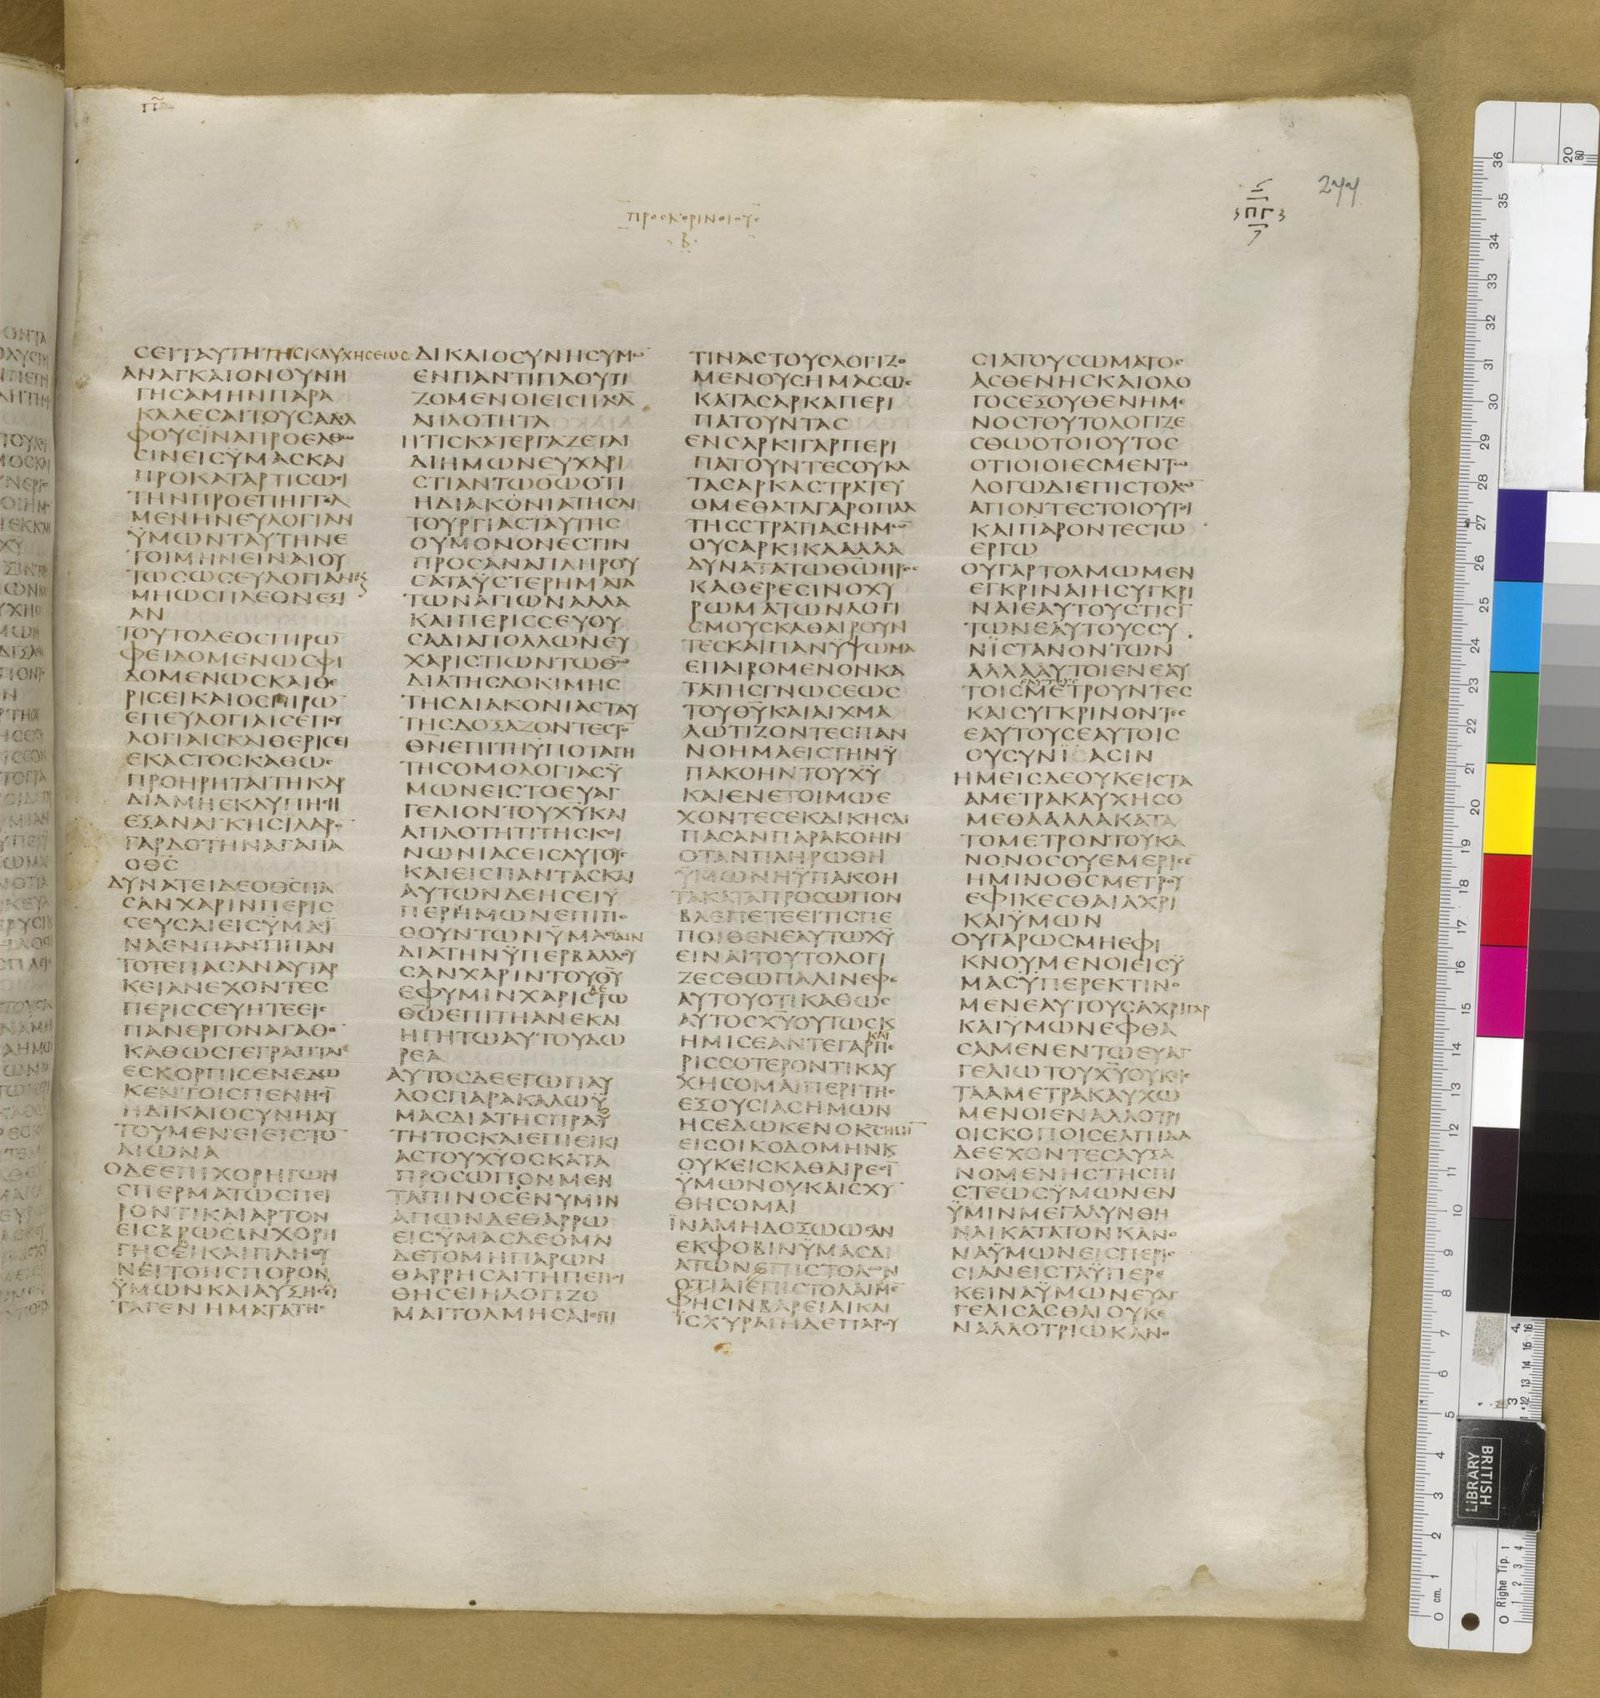 Π̅Γ̅
244
ΠΡΟϹΚΟΡΙΝΘΙΟΥϹ
Β
ϹΕΙΤΑΥΤΗΤΗϹΚΑΥΧΗϹΕΩϹ
ΑΝΑΓΚΑΙΟΝΟΥΝΗ
ΓΗϹΑΜΗΝΠΑΡΑ
ΚΑΛΕϹΑΙΤΟΥϹΑΔΕΛ
ΦΟΥϹΪΝΑΠΡΟΕΛΘΩ
ϹΙΝΕΙϹΫΜΑϹΚΑΙ
ΠΡΟΚΑΤΑΡΤΙϹΩϹΙ
ΤΗΝΠΡΟΕΠΗΓΓΕΛ
ΜΕΝΗΝΕΥΛΟΓΙΑΝ
ΫΜΩΝΤΑΥΤΗΝΕ
ΤΟΙΜΗΝΕΙΝΑΙΟΥ
ΤΩϹΩϹΕΥΛΟΓΙΑΝΚ
ΜΗΩϹΠΛΕΟΝΕΞΙ
ΑΝ
ΤΟΥΤΟΔΕΟϹΠΙΡΩ̅
ΦΕΙΔΟΜΕΝΩϹΦΙ
ΔΟΜΕΝΩϹΚΑΙΘΕ
ΡΙϹΕΙΚΑΙΟϹΠΙΡΩ̅
ΕΠΕΥΛΟΓΙΑΙϹΕΠΕΥ
ΛΟΓΙΑΙϹΚΑΙΘΕΡΙϹΕΙ
ΕΚΑϹΤΟϹΚΑΘΩϹ
ΠΡΟΗΡΗΤΑΙΤΗΚΑΡ
ΔΙΑΜΗΕΚΛΥΠΗϹΗ
ΕΞΑΝΑΓΚΗϹΙΛΑΡΟ̅
ΓΑΡΔΟΤΗΝΑΓΑΠΑ
ΟΘ̅Ϲ̅
ΔΥΝΑΤΕΙΔΕΟΘ̅Ϲ̅ΠΑ
ϹΑΝΧΑΡΙΝΠΕΡΙϹ
ϹΕΥϹΑΙΕΙϹΫΜΑϹΪ
ΝΑΕΝΠΑΝΤΙΠΑΝ
ΤΟΤΕΠΑϹΑΝΑΥΤΑΡ
ΚΕΙΑΝΕΧΟΝΤΕϹ
ΠΕΡΙϹϹΕΥΗΤΕΕΙϹ
ΠΑΝΕΡΓΟΝΑΓΑΘΟ̅
ΚΑΘΩϹΓΕΓΡΑΠΤΑΙ
ΕϹΚΟΡΠΙϹΕΝΕΔΩ
ΚΕΝΤΟΙϹΠΕΝΗϹΙ̅
ΗΔΙΚΑΙΟϹΥΝΗΑΥ
ΤΟΥΜΕΝΕΙΕΙϹΤΟ̅
ΑΙΩΝΑ
ΟΔΕΕΠΙΧΟΡΗΓΩΝ
ϹΠΕΡΜΑΤΩϹΠΕΙ
ΡΟΝΤΙΚΑΙΑΡΤΟΝ
ΕΙϹΒΡΩϹΙΝΧΟΡΗ
ΓΗϹΕΙΚΑΙΠΛΗΘΥ
ΝΕΙΤΟΝϹΠΟΡΟΝ
ΫΜΩΝΚΑΙΑΥΞΗϹΕΙ
ΤΑΓΕΝΗΜΑΤΑΤΗϹ
ΔΙΚΑΙΟϹΥΝΗϹΥΜΩ̅
ΕΝΠΑΝΤΙΠΛΟΥΤΙ
ΖΟΜΕΝΟΙΕΙϹΠΑϹΑ̅
ΑΠΛΟΤΗΤΑ
ΗΤΙϹΚΑΤΕΡΓΑΖΕΤΑΙ
ΔΙΗΜΩΝΕΥΧΑΡΙ
ϹΤΙΑΝΤΩΘΩΟΤΙ
ΗΔΙΑΚΟΝΙΑΤΗϹΛΙ
ΤΟΥΡΓΙΑϹΤΑΥΤΗϹ
ΟΥΜΟΝΟΝΕϹΤΙΝ
ΠΡΟϹΑΝΑΠΛΗΡΟΥ
ϹΑΤΑΫϹΤΕΡΗΜΑΤΑ
ΤΩΝΑΓΙΩΝΑΛΛΑ
ΚΑΙΠΕΡΙϹϹΕΥΟΥ
ϹΑΔΙΑΠΟΛΛΩΝΕΥ
ΧΑΡΙϹΤΙΩΝΤΩΘ̅Ω̅
ΔΙΑΤΗϹΔΟΚΙΜΗϹ
ΤΗϹΔΙΑΚΟΝΙΑϹΤΑΥ
ΤΗϹΔΟΞΑΖΟΝΤΕϹΤΟ̅
ΘΝΕΠΙΤΗΥΠΟΤΑΓΗ
ΤΗϹΟΜΟΛΟΓΙΑϹΫ
ΜΩΝΕΙϹΤΟΕΥΑΓ
ΓΕΛΙΟΝΤΟΥΧ̅Υ̅ΚΑΙ
ΑΠΛΟΤΗΤΙΤΗϹΚΟΙ
ΝΩΝΙΑϹΕΙϹΑΥΤΟΥϹ
ΚΑΙΕΙϹΠΑΝΤΑϹΚΑΙ
ΑΥΤΩΝΔΕΗϹΕΙΫ
ΠΕΡΗΜΩΝΕΠΙΠΟ
ΘΟΥΝΤΩΝΫΜΑϹΙΔΙΝ
ΔΙΑΤΗΝΫΠΕΡΒΑΛΛΟΥ
ϹΑΝΧΑΡΙΝΤΟΥΘ̅Υ̅
ΕΦΥΜΙΝΧΑΡΙϹΔΕΤΩ
ΘΩΕΠΙΤΗΑΝΕΚΔΙ
ΗΓΗΤΩΑΥΤΟΥΔΩ
ΡΕΑ
ΑΥΤΟϹΔΕΕΓΩΠΑΥ
ΛΟϹΠΑΡΑΚΑΛΩΫ
ΜΑϹΔΙΑΤΗϹΠΡΑΫ
ΤΗΤΟϹΚΑΙΕΠΙΕΙΚΙ
ΑϹΤΟΥΧ̅Υ̅ΟϹΚΑΤΑ
ΠΡΟϹΩΠΟΝΜΕΝ
ΤΑΠΙΝΟϹΕΝΥΜΙΝ
ΑΠΩΝΔΕΘΑΡΡΩ
ΕΙϹΫΜΑϹΔΕΟΜΑΙ
ΔΕΤΟΜΗΠΑΡΩΝ
ΘΑΡΡΗϹΑΙΤΗΠΕΠΟΙ
ΘΗϹΕΙΗΛΟΓΙΖΟ
ΜΑΙΤΟΛΜΗϹΑΙΕΠΙ
ΤΙΝΑϹΤΟΥϹΛΟΓΙΖΟ
ΜΕΝΟΥϹΗΜΑϹΩϹ
ΚΑΤΑϹΑΡΚΑΠΕΡΙ
ΠΑΤΟΥΝΤΑϹ
ΕΝϹΑΡΚΙΓΑΡΠΕΡΙ
ΠΑΤΟΥΝΤΕϹΟΥΚΑ
ΤΑϹΑΡΚΑϹΤΡΑΤΕΥ
ΟΜΕΘΑΤΑΓΑΡΟΠΛΑ
ΤΗϹϹΤΡΑΤΙΑϹΗΜΩ̅
ΟΥϹΑΡΚΙΚΑΑΛΛΑ
ΔΥΝΑΤΑΤΩΘΩΠΡΟϹ
ΚΑΘΕΡΕϹΙΝΟΧΥ
ΡΩΜΑΤΩΝΛΟΓΙ
ϹΜΟΥϹΚΑΘΑΙΡΟΥΝ
ΤΕϹΚΑΙΠΑΝΥΨΩΜΑ
ΕΠΑΙΡΟΜΕΝΟΝΚΑ
ΤΑΤΗϹΓΝΩϹΕΩϹ
ΤΟΥΘ̅Υ̅ΚΑΙΑΙΧΜΑ
ΛΩΤΙΖΟΝΤΕϹΠΑΝ
ΝΟΗΜΑΕΙϹΤΗΝΫ
ΠΑΚΟΗΝΤΟΥΧ̅Υ̅
ΚΑΙΕΝΕΤΟΙΜΩΕ
ΧΟΝΤΕϹΕΚΔΙΚΗϹΑΙ
ΠΑϹΑΝΠΑΡΑΚΟΗΝ
ΟΤΑΝΠΛΗΡΩΘΗ
ΫΜΩΝΗΫΠΑΚΟΗ
ΤΑΚΑΤΑΠΡΟϹΩΠΟΝ
ΒΛΕΠΕΤΕΕΙΤΙϹΠΕ
ΠΟΙΘΕΝΕΑΥΤΩΧ̅Υ̅
ΕΙΝΑΙΤΟΥΤΟΛΟΓΙ
ΖΕϹΘΩΠΑΛΙΝΕΦΕ
ΑΥΤΟΥΟΤΙΚΑΘΩϹ
ΑΥΤΟϹΧ̅Υ̅ΟΥΤΩϹΚ
ΗΜΙϹΕΑΝΤΕΓΑΡΚΑΙΠΕ
ΡΙϹϹΟΤΕΡΟΝΤΙΚΑΥ
ΧΗϹΟΜΑΙΠΕΡΙΤΗϹ
ΕΞΟΥϹΙΑϹΗΜΩΝ
ΗϹΕΔΩΚΕΝΟΚ̅Ϲ̅
ΕΙϹΟΙΚΟΔΟΜΗΝΚ
ΟΥΚΕΙϹΚΑΘΑΙΡΕϹΙ̅
ΫΜΩΝΟΥΚΑΙϹΧΥ̅
ΘΗϹΟΜΑΙ
ΪΝΑΜΗΔΟΞΩΩϹΑΝ
ΕΚΦΟΒΙΝΫΜΑϹΔΙ
ΑΤΩΝΕΠΙϹΤΟΛΩΝ
ΟΤΙΑΙΕΠΙϹΤΟΛΑΙΜΕ̅
ΦΗϹΙΝΒΑΡΕΙΑΙΚΑΙ
ΪϹΧΥΡΑΙΗΔΕΠΑΡΟΥ
ϹΙΑΤΟΥϹΩΜΑΤΟϹ
ΑϹΘΕΝΗϹΚΑΙΟΛΟ
ΓΟϹΕΞΟΥΘΕΝΗΜΕ
ΝΟϹΤΟΥΤΟΛΟΓΙΖΕ
ϹΘΩΟΤΟΙΟΥΤΟϹ
ΟΤΙΟΙΟΙΕϹΜΕΝΤΩ
ΛΟΓΩΔΙΕΠΙϹΤΟΛΩ̅
ΑΠΟΝΤΕϹΤΟΙΟΥΤΟΙ
ΚΑΙΠΑΡΟΝΤΕϹΤΩ
ΕΡΓΩ
ΟΥΓΑΡΤΟΛΜΩΜΕΝ
ΕΓΚΡΙΝΑΙΗϹΥΓΚΡΙ
ΝΑΙΕΑΥΤΟΥϹΤΙϹΙ̅
ΤΩΝΕΑΥΤΟΥϹϹΥ
ΝΙϹΤΑΝΟΝΤΩΝ
ΑΛΛΑΑΥΤΟΙΕΝΕΑΥ
ΤΟΙϹΕΑΥΤΟΥϹΜΕΤΡΟΥΝΤΕϹ
ΚΑΙϹΥΓΚΡΙΝΟΝΤΕϹ
ΕΑΥΤΟΥϹΕΑΥΤΟΙϹ
ΟΥϹΥΝΙϹΑϹΙΝ
ΗΜΕΙϹΔΕΟΥΚΕΙϹΤΑ
ΑΜΕΤΡΑΚΑΥΧΗϹΟ
ΜΕΘΑΑΛΛΑΚΑΤΑ
ΤΟΜΕΤΡΟΝΤΟΥΚΑ
ΝΟΝΟϹΟΥΕΜΕΡΙϹΕ
ΗΜΙΝΟΘ̅Ϲ̅ΜΕΤΡΟΥ
ΕΦΙΚΕϹΘΑΙΑΧΡΙ
ΚΑΙΫΜΩΝ
ΟΥΓΑΡΩϹΜΗΕΦΙ
ΚΝΟΥΜΕΝΟΙΕΙϹΫ
ΜΑϹΫΠΕΡΕΚΤΙΝΟ
ΜΕΝΕΑΥΤΟΥϹΑΧΡΙΓΑΡ
ΚΑΙΥΜΩΝΕΦΘΑ
ϹΑΜΕΝΕΝΤΩΕΥΑΓ
ΓΕΛΙΩΤΟΥΧ̅Υ̅ΟΥΚΕΙϹ
ΤΑΑΜΕΤΡΑΚΑΥΧΩ
ΜΕΝΟΙΕΝΑΛΛΟΤΡΙ
ΟΙϹΚΟΠΟΙϹΕΛΠΙΔΑ
ΔΕΕΧΟΝΤΕϹΑΥΞΑ
ΝΟΜΕΝΗϹΤΗϹΠΙ
ϹΤΕΩϹΫΜΩΝΕΝ
ΫΜΙΝΜΕΓΑΛΥΝΘΗ
ΝΑΙΚΑΤΑΤΟΝΚΑΝΟ
ΝΑΫΜΩΝΕΙϹΠΕΡΙϹ
ϹΙΑΝΕΙϹΤΑΫΠΕΡΕ
ΚΕΙΝΑΫΜΩΝΕΥΑΓ
ΓΕΛΙϹΑϹΘΑΙΟΥΚΕ
ΝΑΛΛΟΤΡΙΩΚΑΝΟ
BRITISH
LIBRARY